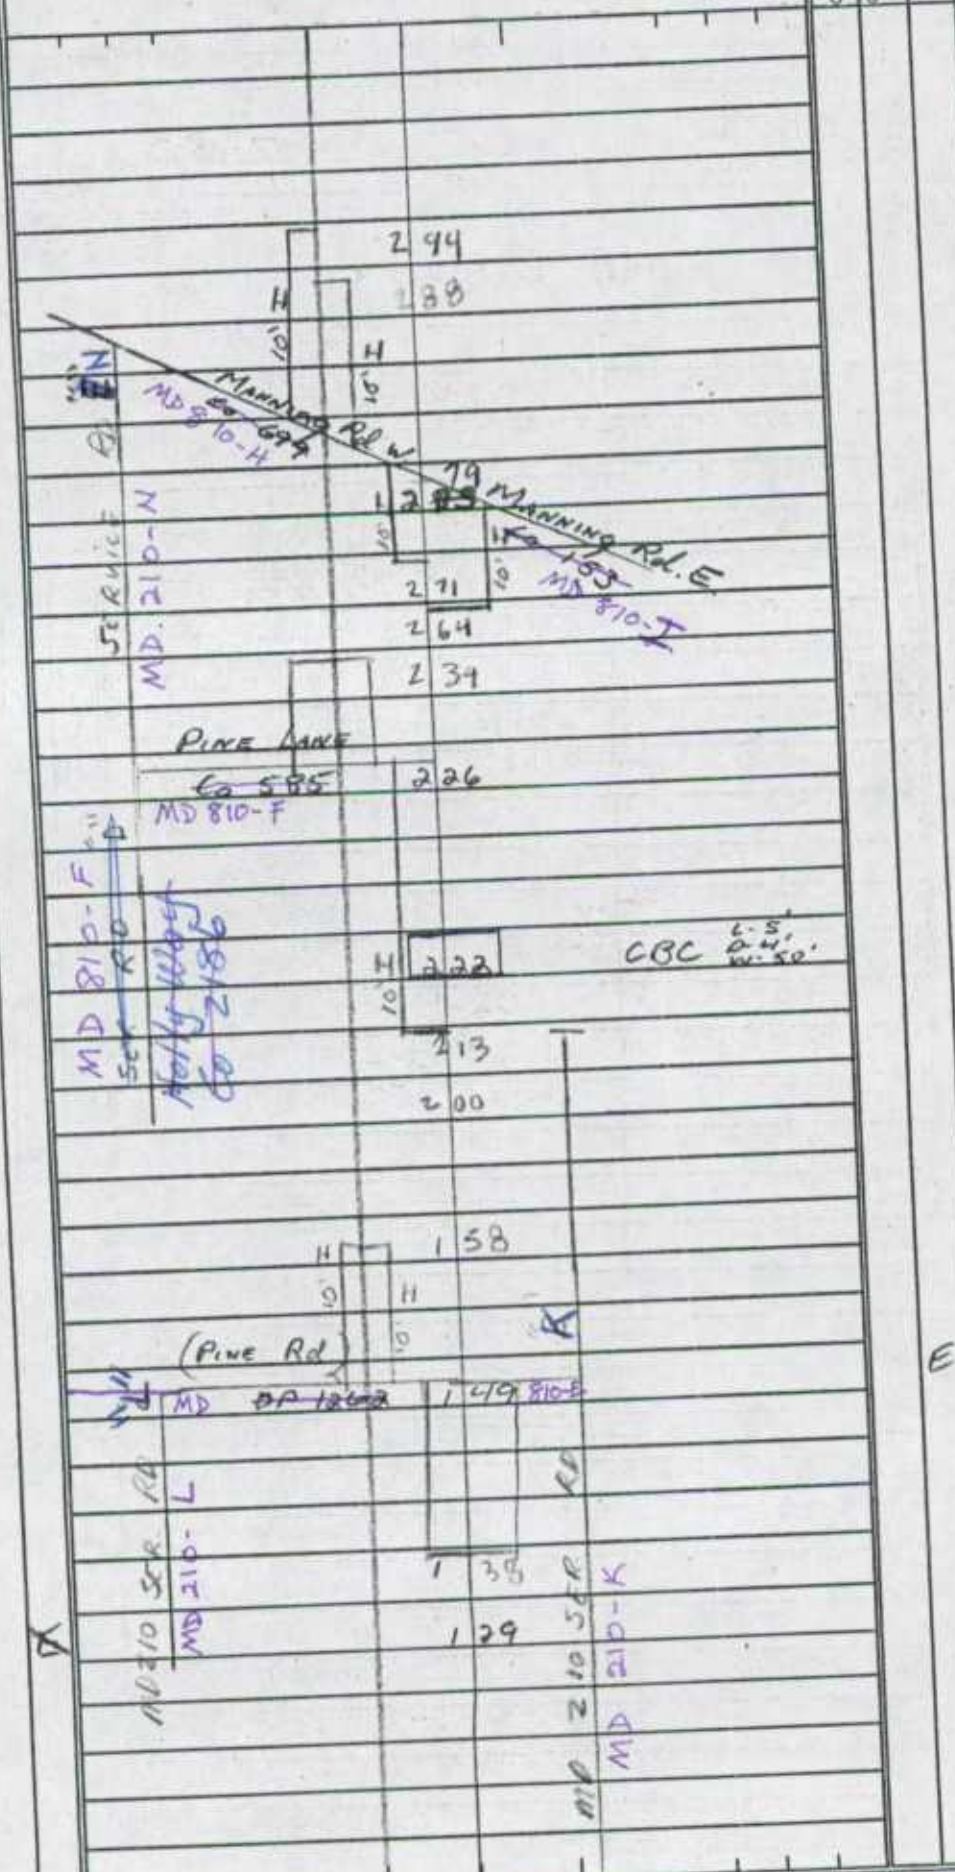 2 94
2 88
H
10'
H
10'
N
MANNING Rd W
Co 694
MD 810-H
79
2
MANNING Rd. E.
Co 153
MD 810-I
H
10'
H
10'
SERVICE Rd
MD. 210-N
2 71
2 64
2 34
PINE LANE
Co 585
MD 810-F
2 26
MD 810-F
SER RD
Holly Way
Co 2186
H
10'
2 22
CBC L-5'
D-4'
W-50'
2 13
2 00
1 58
H
10'
H
10'
K
(PINE Rd)
L
MD OP 1262 1 49 810-E
E
1 38
1 29
MD 210 SER RD
MD 210-L
MD 210 SER RD
MD 210-K